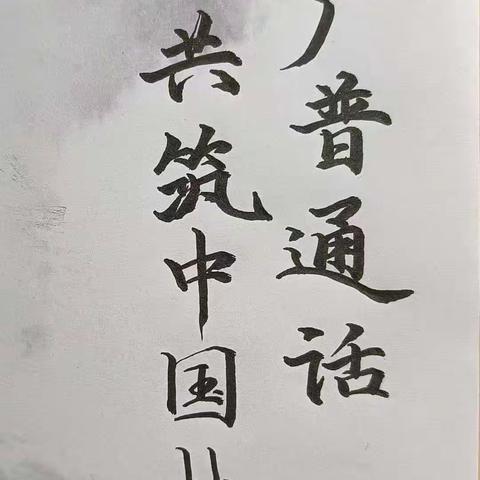 普通话
共筑中国